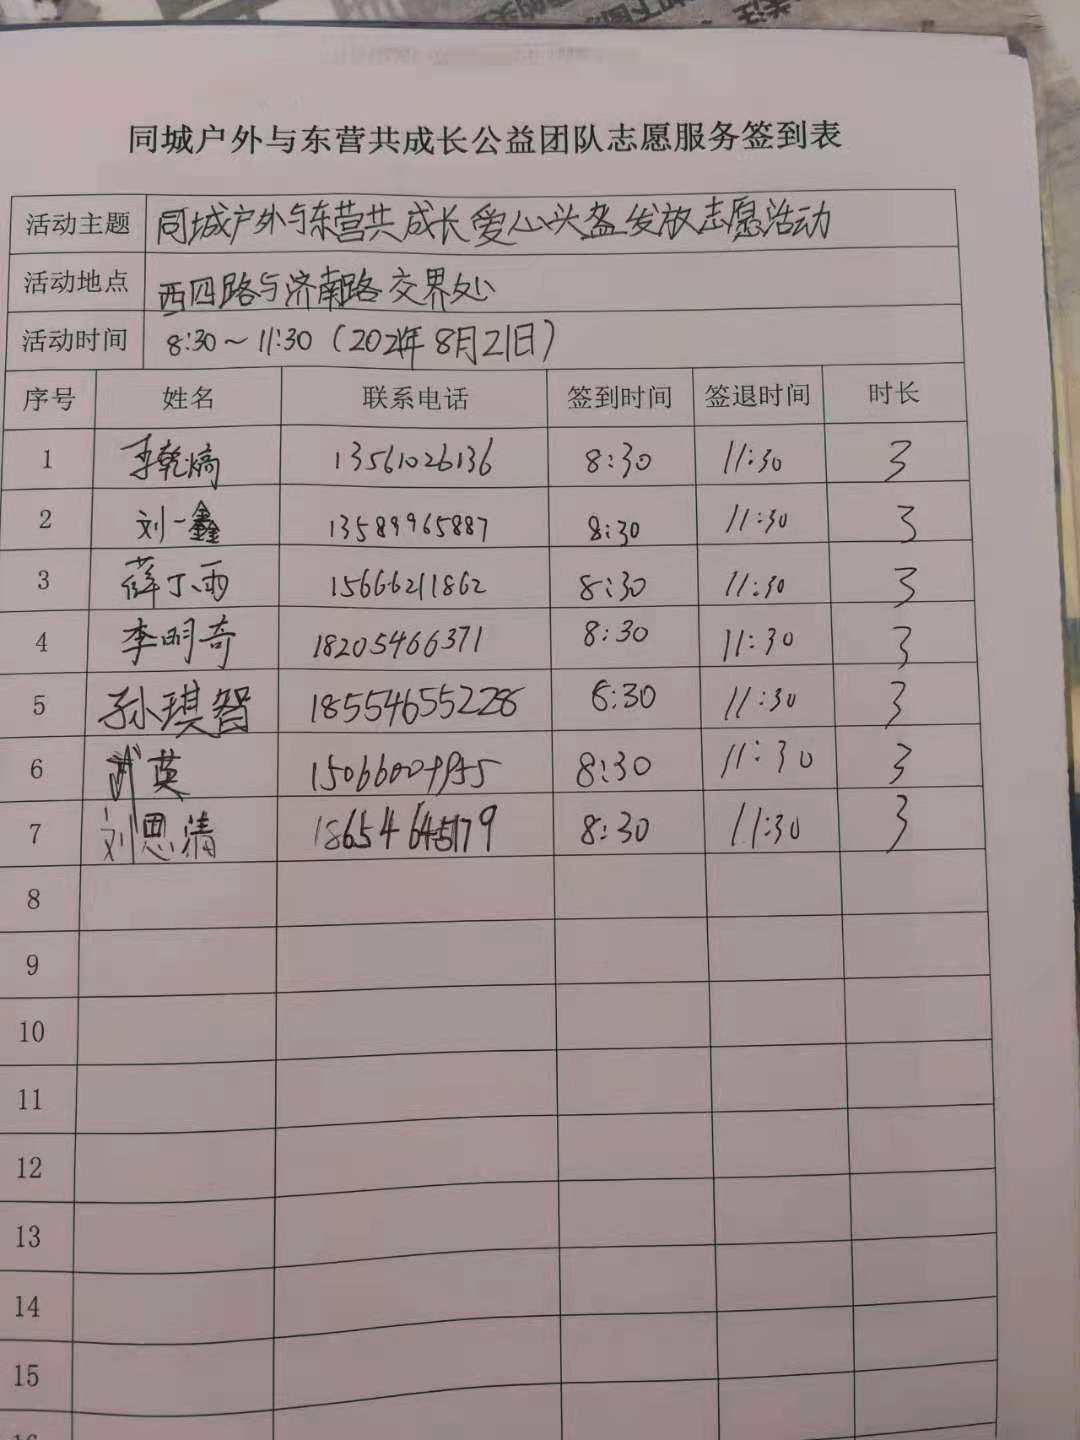 同城户外与东营共成长公益团队志愿服务签到表
活动主题 同城户外与东营共成长爱心头盔发放志愿活动
活动地点 西四路与济南路交界处
活动时间 8:30～11:30（2021年8月21日）
序号 姓名 联系电话 签到时间 签退时间 时长
1 李乾熵 13561026136 8:30 11:30 3
2 刘一鑫 13589965887 8:30 11:30 3
3 薛丁雨 15666211862 8:30 11:30 3
4 李明奇 18205466371 8:30 11:30 3
5 孙琪智 18554655228 8:30 11:30 3
6 武英 15066009955 8:30 11:30 3
7 刘思清 8:30 11:30 3
8
9
10
11
12
13
14
15